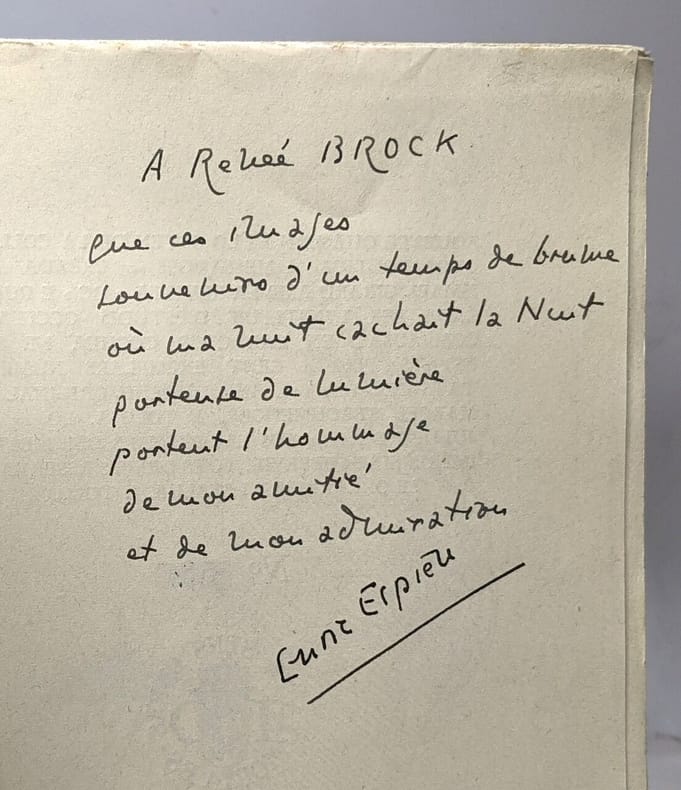 A Renée BROCK
que ces images
souvenirs d'un temps de brume
où ma nuit cachait la Nuit
porteuse de lumière
portent l'hommage
de mon amitié
et de mon admiration